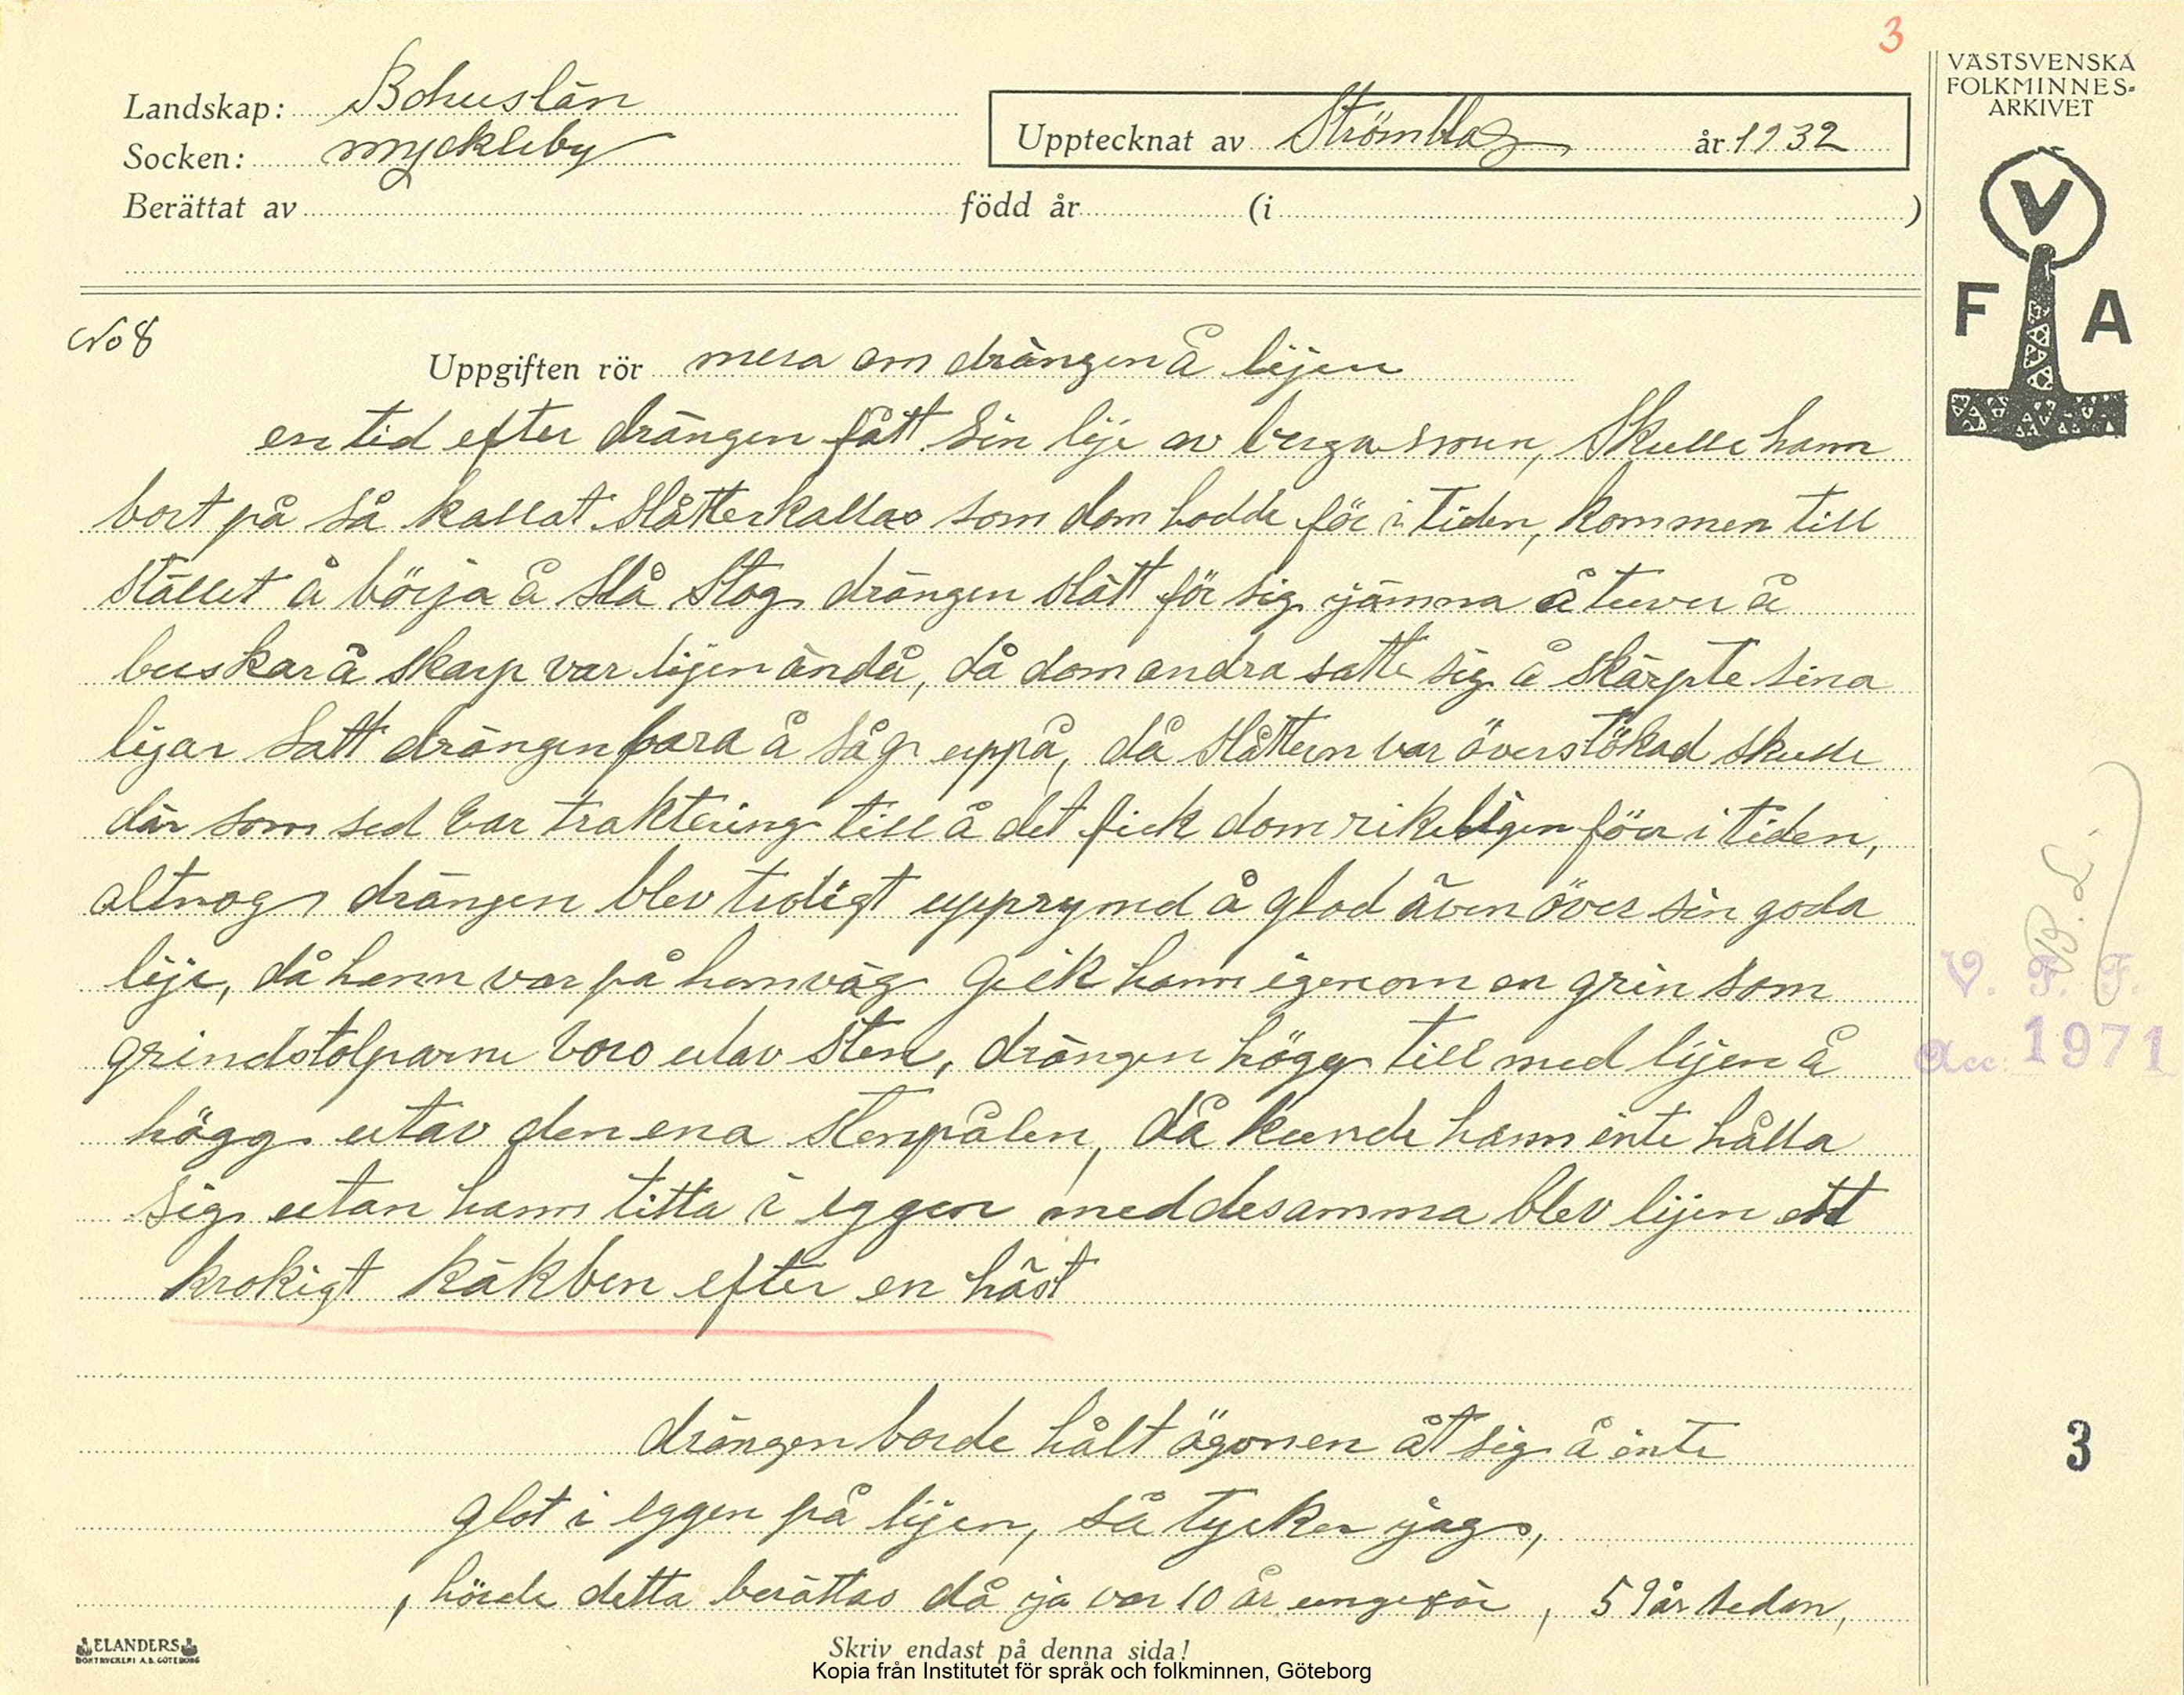 3
VÄSTSVENSKA
FOLKMINNES-
ARKIVET
Landskap: Bohuslän
Socken: myckleby
Upptecknat av Strömblad år 1932
Berättat av född år (i )
V
F A
No 8
Uppgiften rör mera om drängen å lijen
en tid efter drängen fått sin lije av berga, skulle hann
bort på så kallat slåtterkallas som dom hadde för i tiden, kommen till
stället å börja å slå slog drängen slätt för sig jämna å tuver å
buskar å skarp var lijen ändå, då dom andra satte sig å skärpte sina
lijar satt drängen bara å såg uppå, då slåttern var överstökad skulle
där som sed var traktering till å det fick dom rikeligen förr i tiden,
altnog drängen blev tidigt upprymd å glad även över sin goda
lije, då hann var på hemväg gick hann igenom en grin som
grindstolparne voro utav sten, drängen högg till med lijen å
högg utav den ena stenpålen, då kunde hann inte hålla
sig utan hann titta i eggen meddesamma blev lijen ett
krokigt käkben efter en häst
drängen borde hålt ögonen åt sig å inte
glot i eggen på lijen, så tycker jag,
, hörde detta berättas då ja var 10 år ungefär, 59 år sedan,
B. L.
V. F. F.
Acc. 1971
3
ELANDERS
BOKTRYCKERI A.B. GÖTEBORG
Skriv endast på denna sida!
Kopia från Institutet för språk och folkminnen, Göteborg